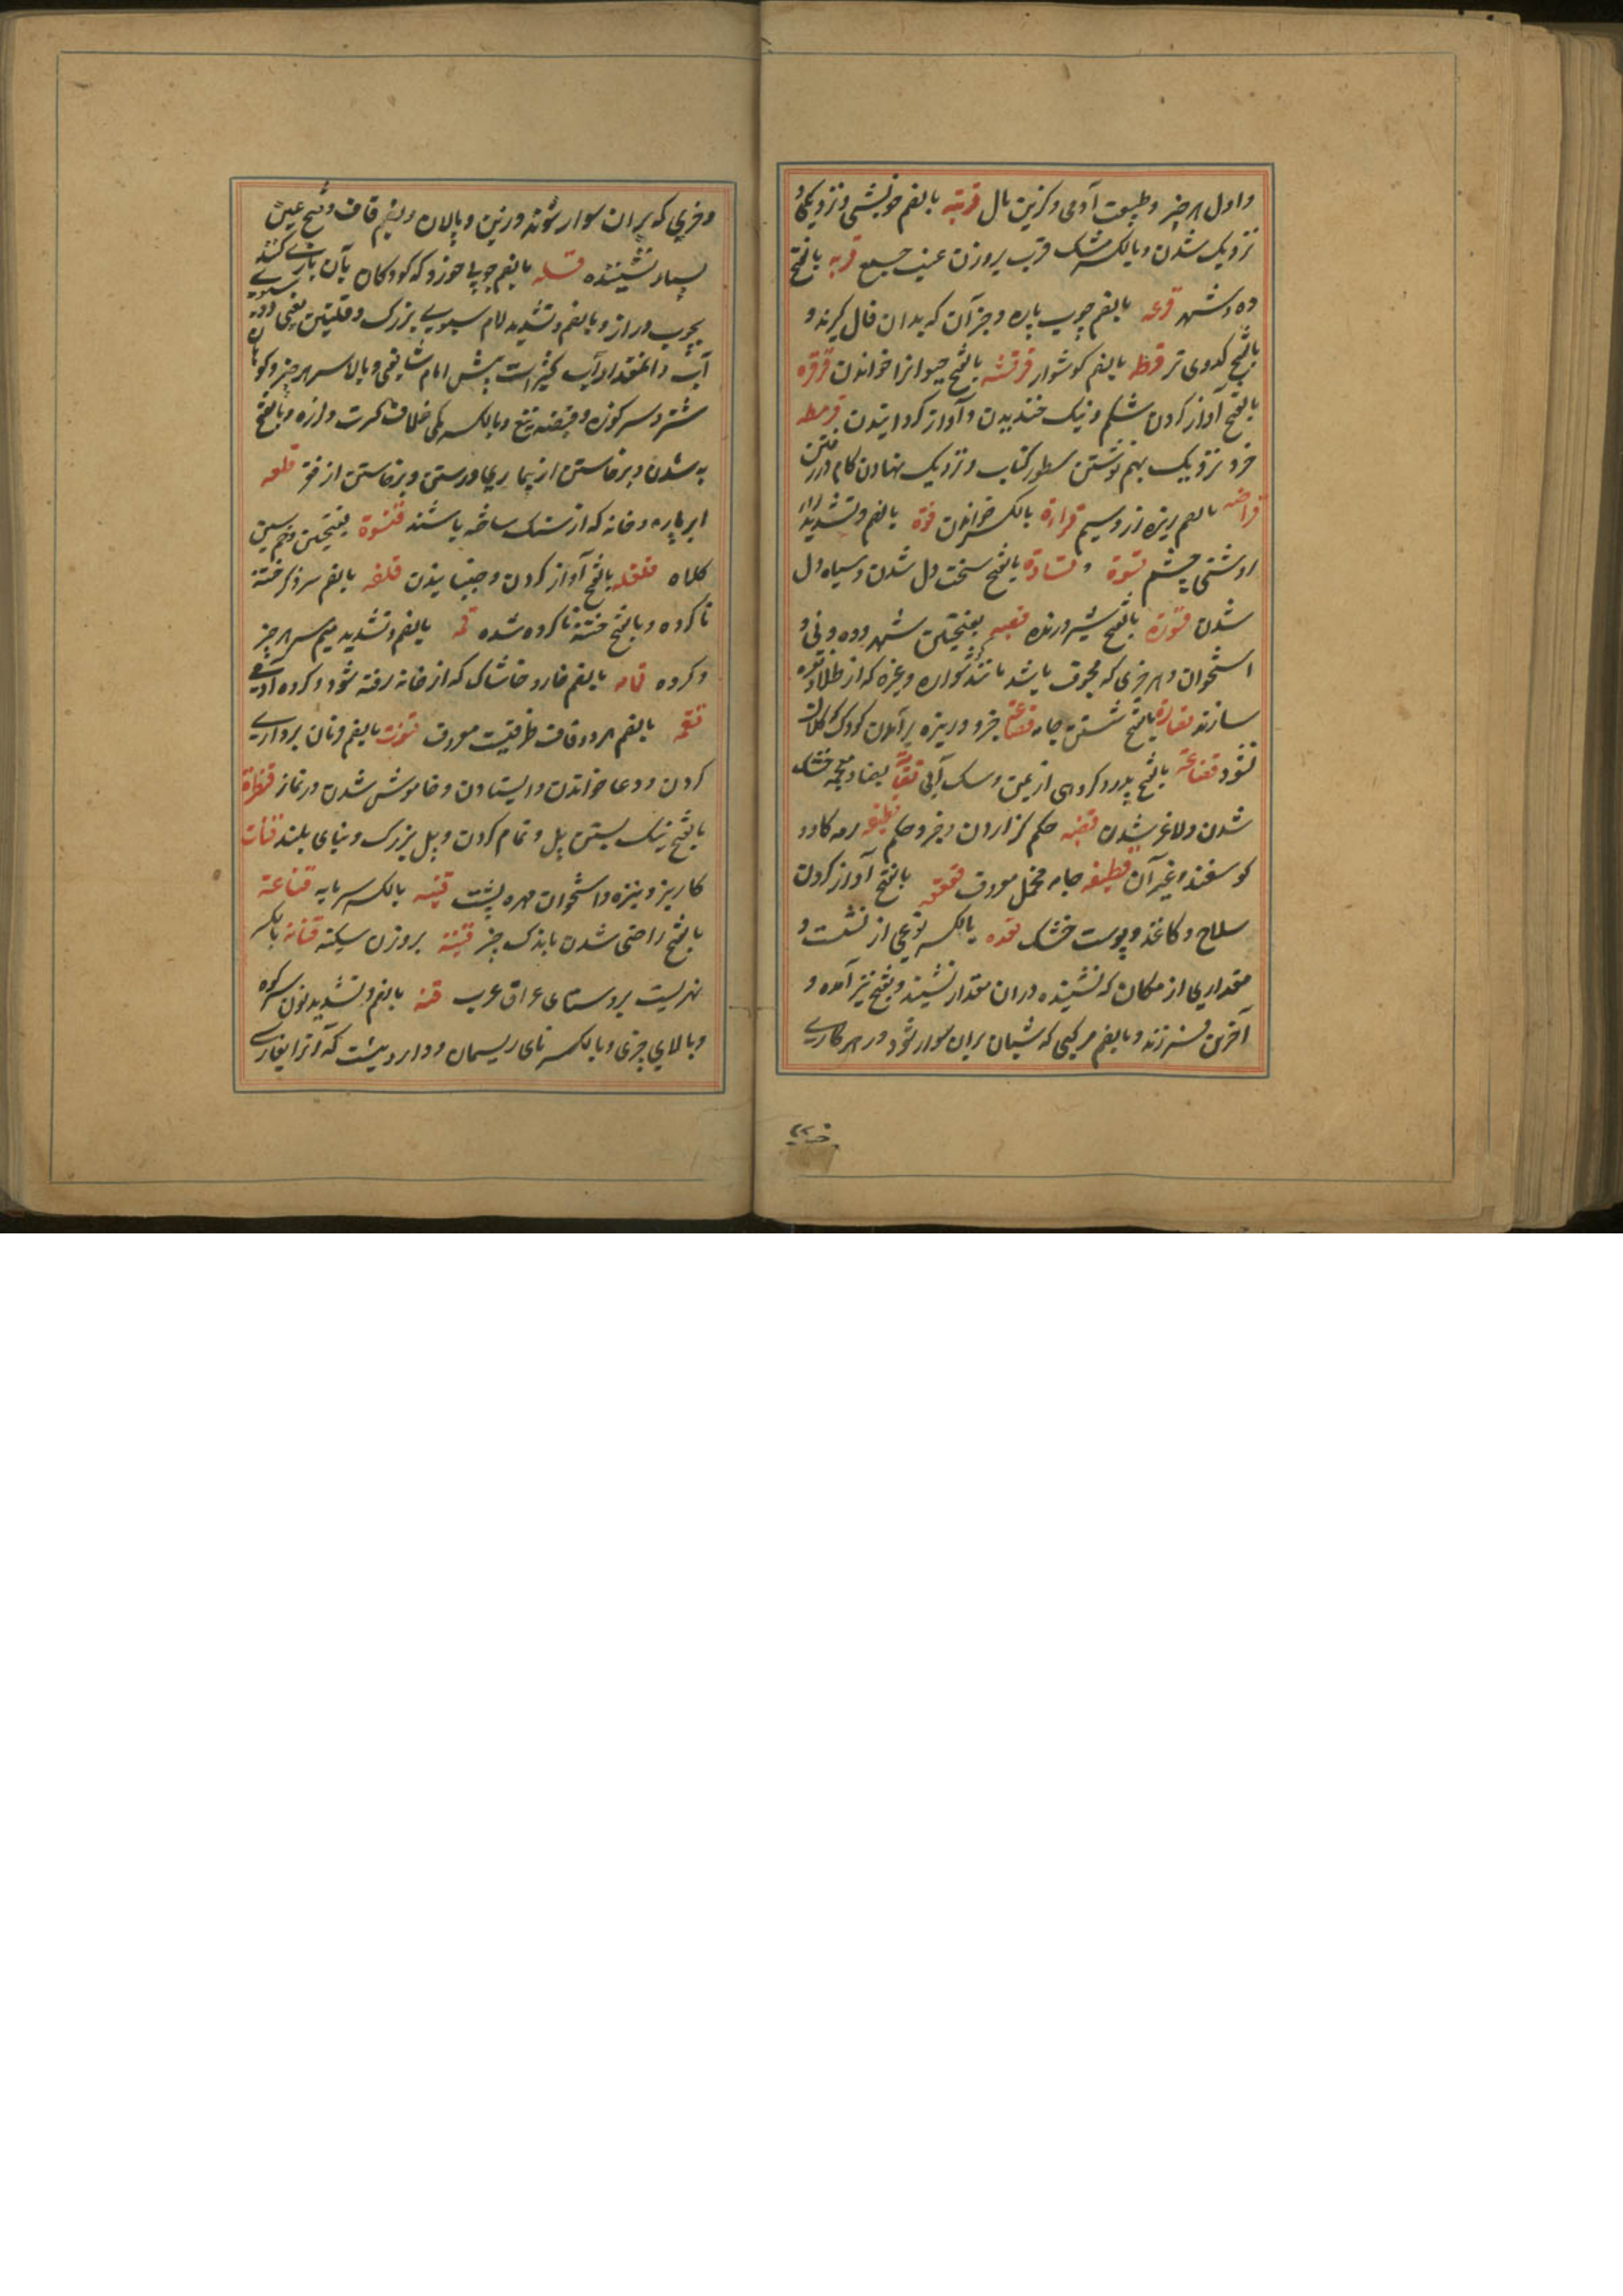 و اول هر چیز و طبیعت آدمی و گزین مال قربة بالضم خویشی و نزدیکی و
نزدیک شدن و بالکسر مشک قرب بروزن عنب جمع قریه بالفتح
ده و شهر قرعه بالضم چوب پاره و جز آن که بدان فال گیرند و
بالفتح کدوی تر قرطه بالضم گوشوار بالفتح خواندن قرقره
بالفتح آواز کردن شکم و نیک خندیدن و آواز گردانیدن قرمطه
خرد و نزدیک بهم نوشتن سطور کتاب و نزدیک نهادن گام در رفتن
قراضه بالضم ریزه زر و سیم قراءة بالکسر خواندن قرة بالضم و تشدید را
روشنی چشم قسوة و قساوة بالفتح سخت دل شدن و سیاه دل
شدن قسورة بالفتح شیر درنده قصبه بفتحتین شهر و ده و نی و
استخوان و هر چیزی که مجوف باشد مانند گوشواره و غیره که از طلا و نقره
سازند قصارة بالفتح شستن جامه خرد و ریزه برآمدن کودک و کلان
نشود قضاعة بالفتح پدر گروهی از یمن و سگ آبی بضاد معجمه خشک
شدن و لاغر شدن قضیه حکم گزاردن و خبر و حکم قطیعه رمه گاو و
گوسفند و غیر آن قطیفه جامه مخمل معروف قعقعه بالفتح آواز کردن
سلاح و کاغذ و پوست خشک قعده بالکسر نوعی از نشست و
مقداری از مکان که نشینده در آن مقدار نشیند و بفتح نیز آمده و
آخرین فرزند و بالضم مرکبی که شبان بران سوار شود در هر کاری
و خری که بران سوار شوند و زین و پالان و بضم قاف و فتح عین
بسیار نشیننده قله بالضم چوبی خورد که کودکان بآن بازی کنند
بچوب دراز و بالضم و تشدید لام سبوی بزرگ و قلتین یعنی دو سبوی
آب و آنمقدار آب کثیر است پیش امام شافعی و بالای سر هر چیز و کوهان
شتر و سر کوزه و قبضه تیغ و بالکسر کمی خلاف کثرت و لرزه و بالفتح
به شدن و برخاستن از بیماری و درستی و برخاستن از فقر قلعه
ابر پاره و خانه که از سنگ ساخته باشند قلنسوة بفتحتین و ضم سین
کلاه قلقله بالفتح آواز کردن و جنبانیدن قلفه بالضم سر ذکر ختنه
ناکرده و بالفتح ختنه ناکرده شده قمه بالضم و تشدید میم سر هر چیز
و گروه قمامه بالضم خار و خاشاک که از خانه رفته شود و گروه آدمی
قمقمه بالضم هر دو قاف ظرفیست معروف قنوت بالضم فرمان برداری
کردن و دعا خواندن و ایستادن و خاموش شدن در نماز قنطرة
بالفتح نیک بستن پل و تمام کردن و پل بزرگ و بنای بلند قنات
کاریز و نیزه و استخوان مهره پشت قنیه بالکسر سرمایه قناعة
بالفتح راضی شدن باندک چیز قنینة بروزن سکینه بالکسر
نهریست بروستای عراق عرب قنه بالضم و تشدید نون سر کوه
و بالای چیزی و بالکسر تای ریسمان و داروییست که آنرا بفارسی